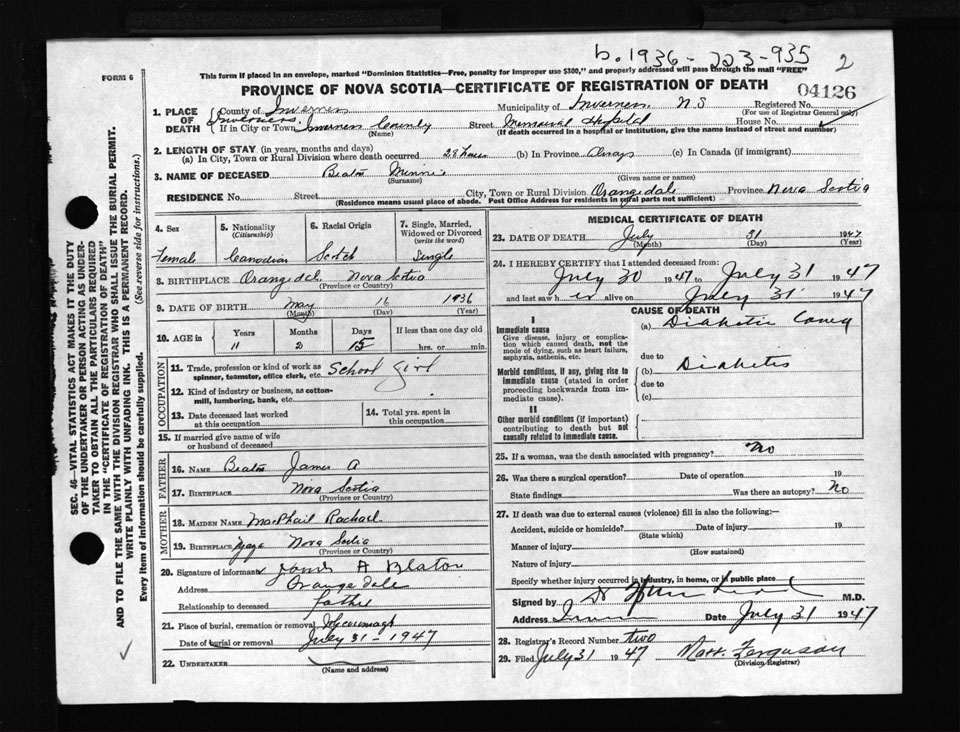 b. 1936 - 223 - 935 2
FORM 6
This form if placed in an envelope, marked "Dominion Statistics—Free, penalty for improper use $300," and properly addressed will pass through the mail "FREE"
PROVINCE OF NOVA SCOTIA—CERTIFICATE OF REGISTRATION OF DEATH
04126
1. PLACE OF DEATH County of Inverness Municipality of Inverness N S Registered No.
(For use of Registrar General only)
If in City or Town Inverness County Street Memorial Hospital House No.
(Name) (If death occurred in a hospital or institution, give the name instead of street and number)
2. LENGTH OF STAY (in years, months and days)
(a) In City, Town or Rural Division where death occurred 28 hours (b) In Province Always (c) In Canada (if immigrant)
3. NAME OF DECEASED Beaton Minnie
(Surname) (Given name or names)
RESIDENCE No. Street City, Town or Rural Division Orangedale Province Nova Scotia
(Residence means usual place of abode. Post Office Address for residents in rural parts not sufficient)
4. Sex 5. Nationality (Citizenship) 6. Racial Origin 7. Single, Married, Widowed or Divorced (write the word)
Female Canadian Scotch Single
8. BIRTHPLACE Orangedale Nova Scotia
(Province or Country)
9. DATE OF BIRTH May 16 1936
(Month) (Day) (Year)
10. AGE in Years Months Days If less than one day old
11 2 15 hrs. or min.
OCCUPATION
11. Trade, profession or kind of work as spinner, teamster, office clerk, etc. School Girl
12. Kind of industry or business, as cotton-mill, lumbering, bank, etc.
13. Date deceased last worked at this occupation
14. Total yrs. spent in this occupation
15. If married give name of wife or husband of deceased
FATHER
16. NAME Beaton James A
17. BIRTHPLACE Nova Scotia
(Province or Country)
MOTHER
18. MAIDEN NAME MacPhail Rachael
19. BIRTHPLACE Nova Scotia
(Province or Country)
20. Signature of informant James A Beaton
Address Orangedale
Relationship to deceased father
21. Place of burial, cremation or removal
Date of burial or removal July 31 - 1947
22. UNDERTAKER
(Name and address)
MEDICAL CERTIFICATE OF DEATH
23. DATE OF DEATH July 31 1947
(Month) (Day) (Year)
24. I HEREBY CERTIFY that I attended deceased from:
July 30 1947 to July 31 1947
and last saw her alive on July 31 1947
CAUSE OF DEATH
I
Immediate cause
Give disease, injury or complication which caused death, not the mode of dying, such as heart failure, asphyxia, asthenia, etc.
(a) Diabetic Coma
due to
Morbid conditions, if any, giving rise to immediate cause (stated in order proceeding backwards from immediate cause).
(b) Diabetes
due to
(c)
II
Other morbid conditions (if important) contributing to death but not causally related to immediate cause.
25. If a woman, was the death associated with pregnancy? No
26. Was there a surgical operation? Date of operation 19
State findings Was there an autopsy? No
27. If death was due to external causes (violence) fill in also the following:—
Accident, suicide or homicide? Date of injury 19
(State which)
Manner of injury
(How sustained)
Nature of injury
Specify whether injury occurred in industry, in home, or in public place
Signed by M.D.
Address Date July 31 1947
28. Registrar's Record Number two
29. Filed July 31 1947 Ferguson
(Division Registrar)
SEC. 46—VITAL STATISTICS ACT MAKES IT THE DUTY
OF THE UNDERTAKER OR PERSON ACTING AS UNDERTAKER
TO OBTAIN ALL THE PARTICULARS REQUIRED
IN THE "CERTIFICATE OF REGISTRATION OF DEATH"
AND TO FILE THE SAME WITH THE DIVISION REGISTRAR WHO SHALL ISSUE THE BURIAL PERMIT.
WRITE PLAINLY WITH UNFADING INK. THIS IS A PERMANENT RECORD.
Every item of information should be carefully supplied. (See reverse side for instructions.)